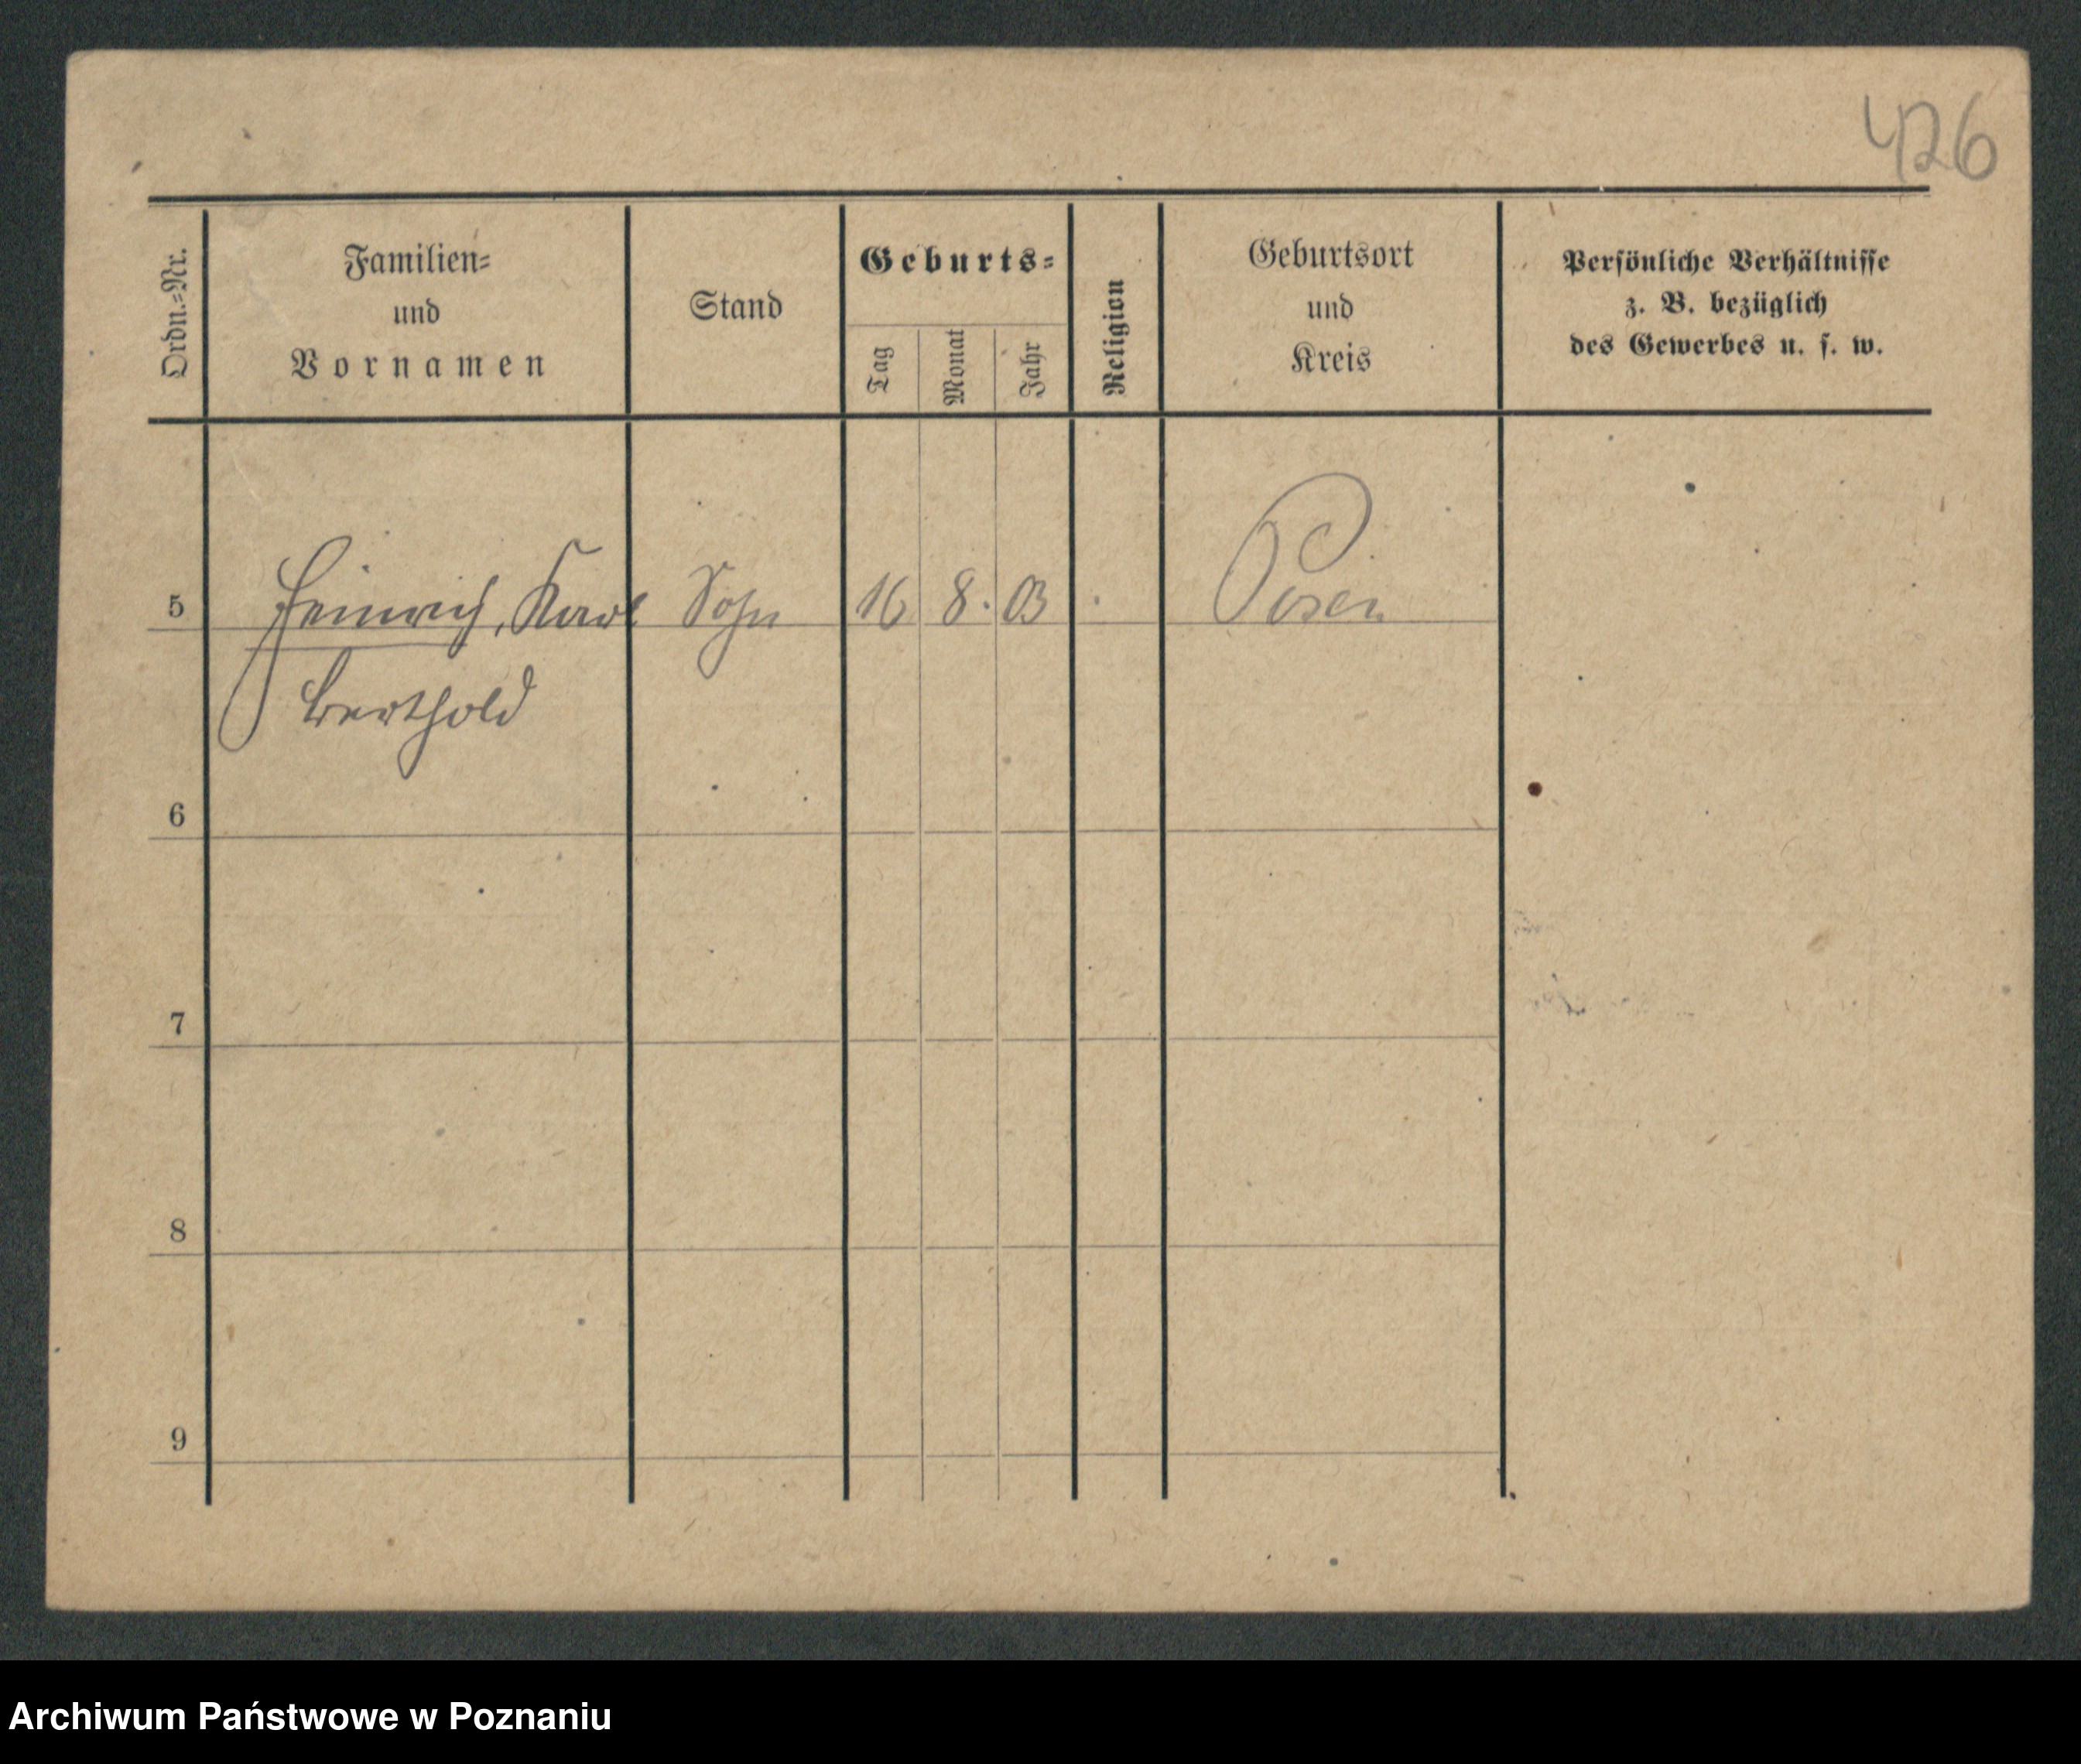 426
Ordn.=Nr.
Familien=
und
Vornamen
Stand
Geburts=
Tag
Monat
Jahr
Religion
Geburtsort
und
Kreis
Persönliche Verhältnisse
z. B. bezüglich
des Gewerbes u. s. w.
5 Heinrich, Karl Sohn 16 8. 03 Posen
Berthold
6
7
8
9
Archiwum Państwowe w Poznaniu